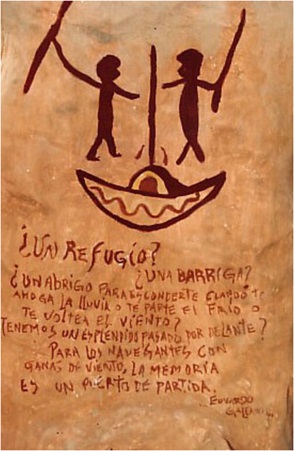 ¿UN REFUGIO?
¿UNA BARRIGA?
¿UN ABRIGO PARA ESCONDERTE CUANDO TE
AHOGA LA LLUVIA O TE PARTE EL FRIO O
TE VOLTEA EL VIENTO?
TENEMOS UN ESPLENDIDO PASADO POR DELANTE?
PARA LOS NAVEGANTES CON
GANAS DE VIENTO, LA MEMORIA
ES UN PUERTO DE PARTIDA.
EDUARDO
GALEANO